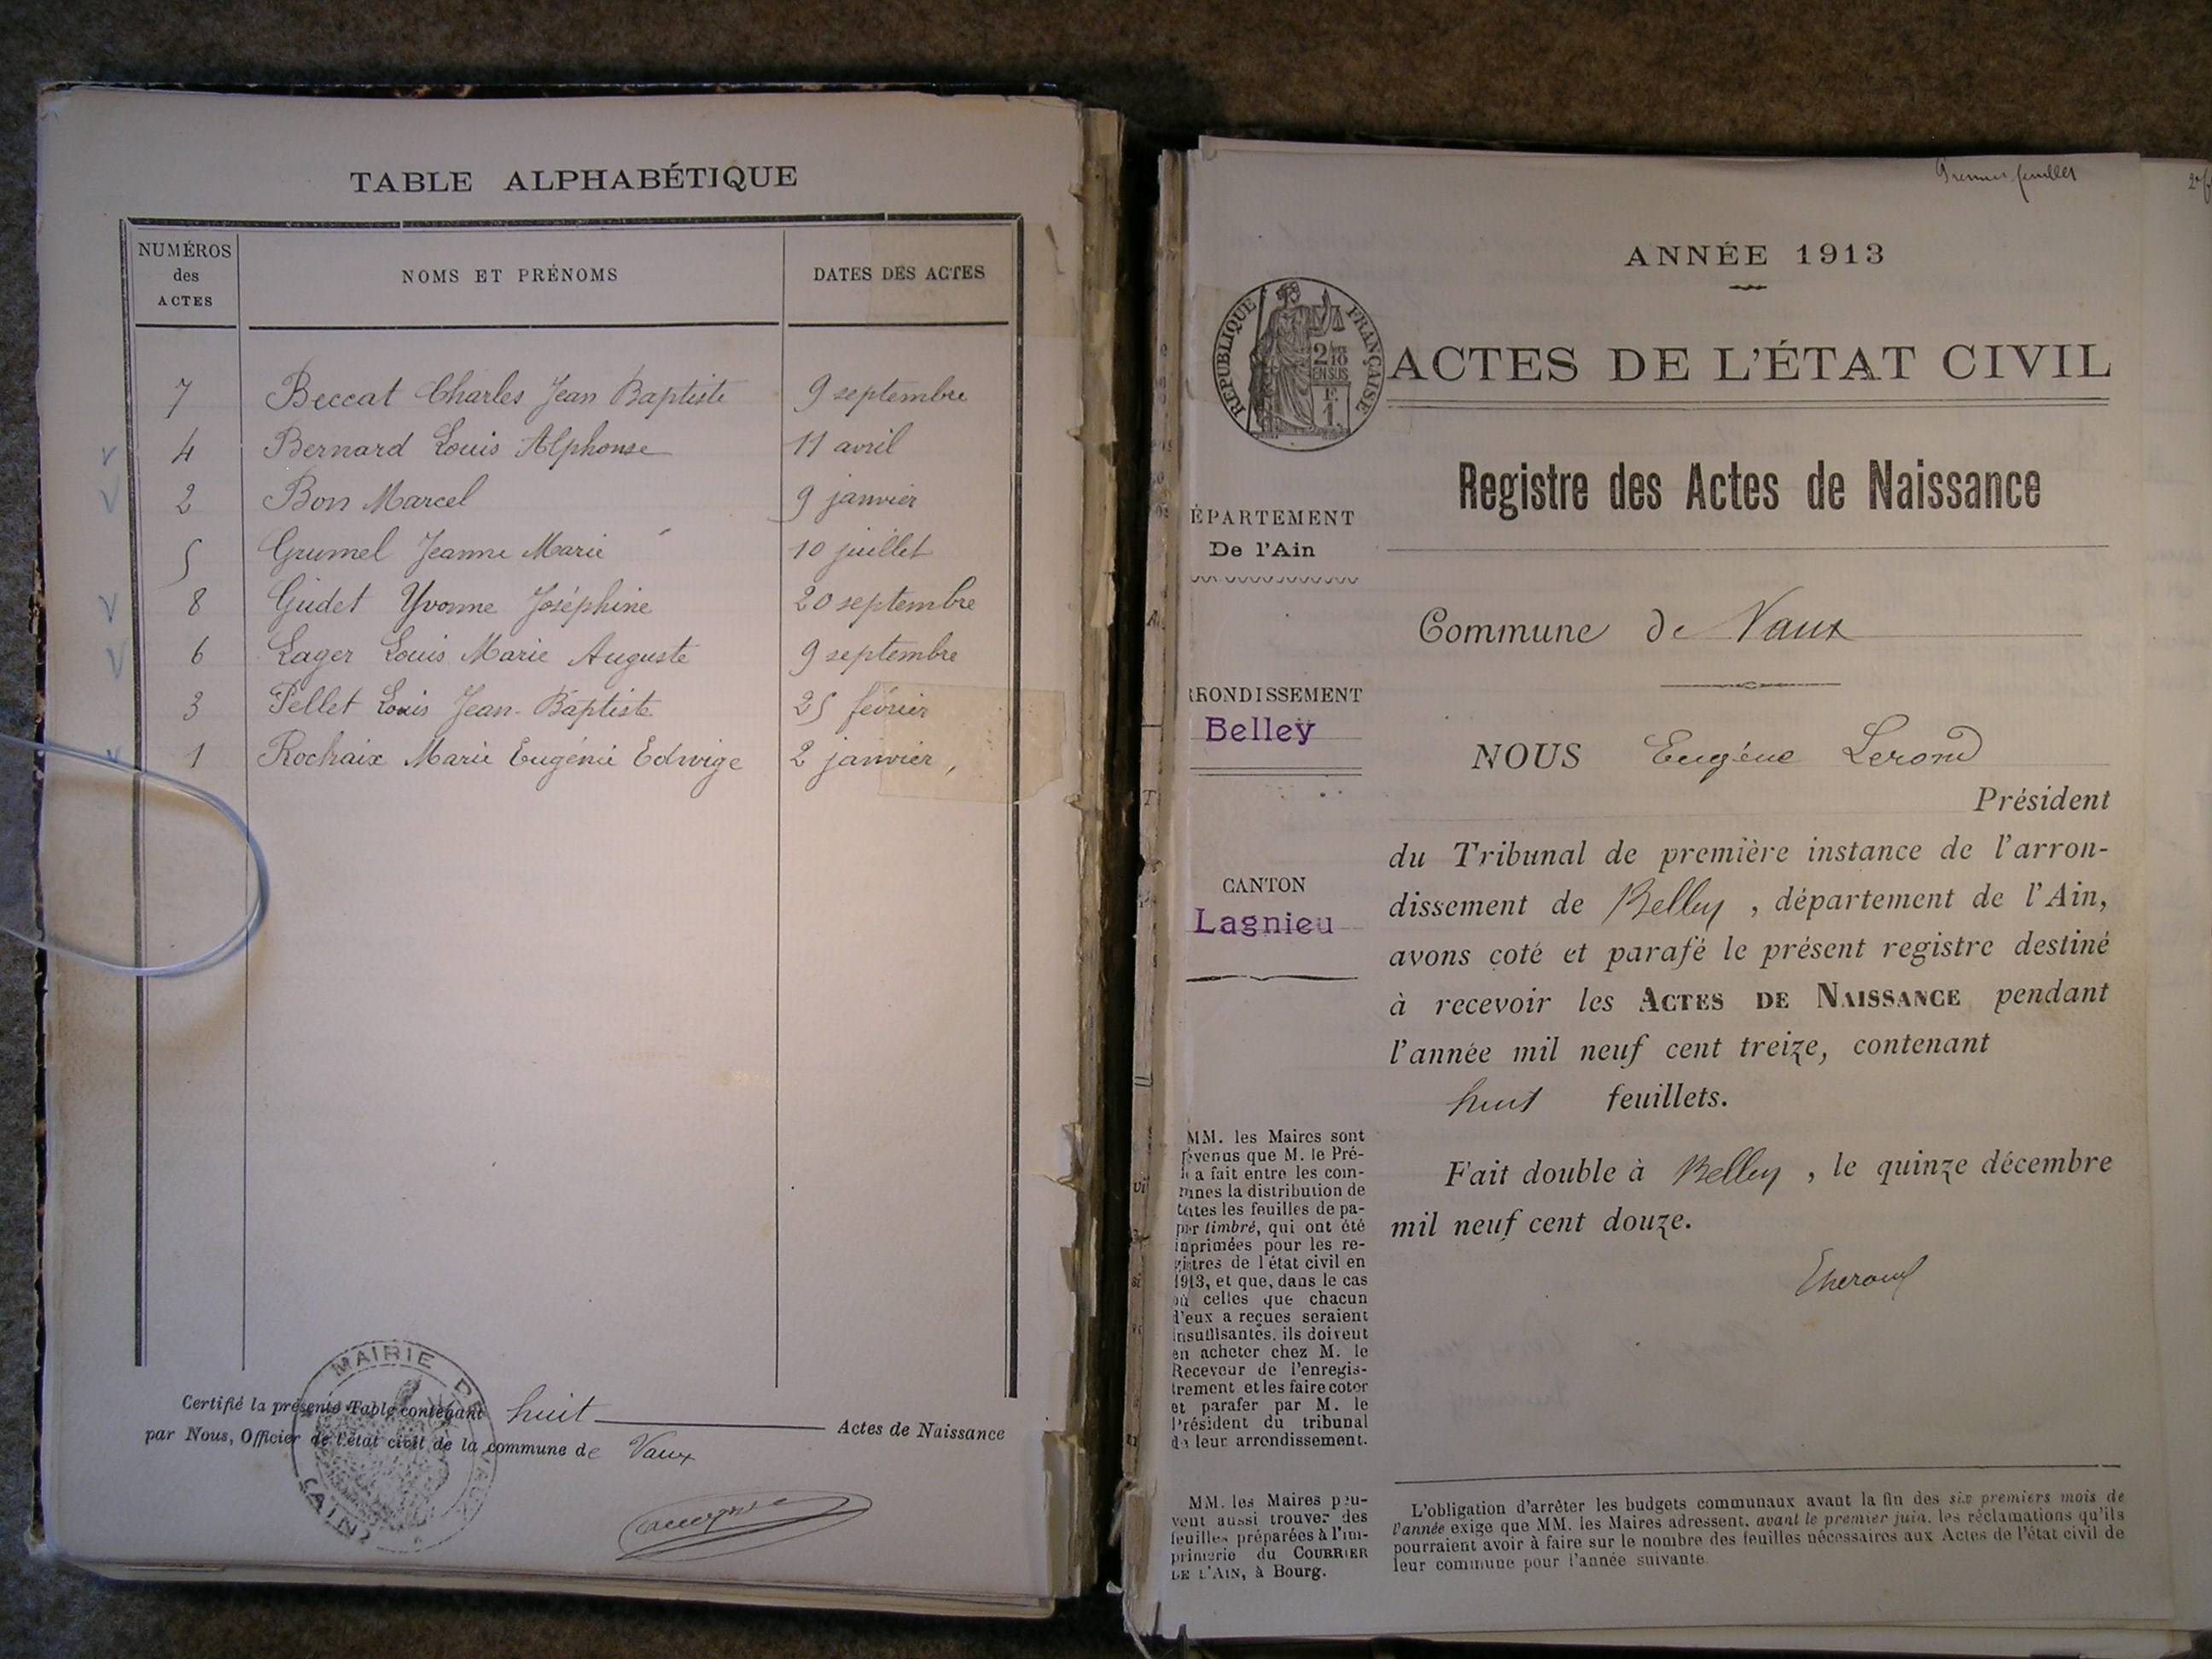 TABLE ALPHABÉTIQUE
NUMÉROS des ACTES
NOMS ET PRÉNOMS
DATES DES ACTES
7 Beccat Charles Jean Baptiste 9 septembre
4 Bernard Louis Alphonse 11 avril
2 Bon Marcel 9 janvier
5 Grumel Jeanne Marie 10 juillet
8 Gudet Yvonne Joséphine 20 septembre
6 Lager Louis Marie Auguste 9 septembre
3 Pellet Louis Jean-Baptiste 25 février
1 Rochaix Marie Eugénie Edwige 2 janvier,
MAIRIE DE VAUX
(AIN)
Certifié la présente Table contenant huit Actes de Naissance
par Nous, Officier de l'état civil de la commune de Vaux
Premier feuillet
ANNÉE 1913
RÉPUBLIQUE FRANÇAISE
2/10
EN SUS
F.
1.
ACTES DE L'ÉTAT CIVIL
Registre des Actes de Naissance
ÉPARTEMENT
De l'Ain
Commune de Vaux
RONDISSEMENT
Belley
NOUS Eugène Lerond
Président
du Tribunal de première instance de l'arron-
dissement de Belley, département de l'Ain,
avons coté et parafé le présent registre destiné
à recevoir les ACTES DE NAISSANCE pendant
l'année mil neuf cent treize, contenant
huit feuillets.
Fait double à Belley, le quinze décembre
mil neuf cent douze.
CANTON
Lagnieu
MM. les Maires sont
évenus que M. le Pré-
a fait entre les com-
munes la distribution de
toutes les feuilles de pa-
pier timbré, qui ont été
imprimées pour les re-
gistres de l'état civil en
1913, et que, dans le cas
où celles que chacun
d'eux a reçues seraient
insuffisantes, ils doivent
en acheter chez M. le
Receveur de l'enregis-
trement et les faire coter
et parafer par M. le
Président du tribunal
de leur arrondissement.
MM. les Maires peu-
vent aussi trouver des
feuilles préparées à l'im-
primerie du COURRIER
DE L'AIN, à Bourg.
L'obligation d'arrêter les budgets communaux avant la fin des six premiers mois de
l'année exige que MM. les Maires adressent, avant le premier juin, les réclamations qu'ils
pourraient avoir à faire sur le nombre des feuilles nécessaires aux Actes de l'état civil de
leur commune pour l'année suivante.